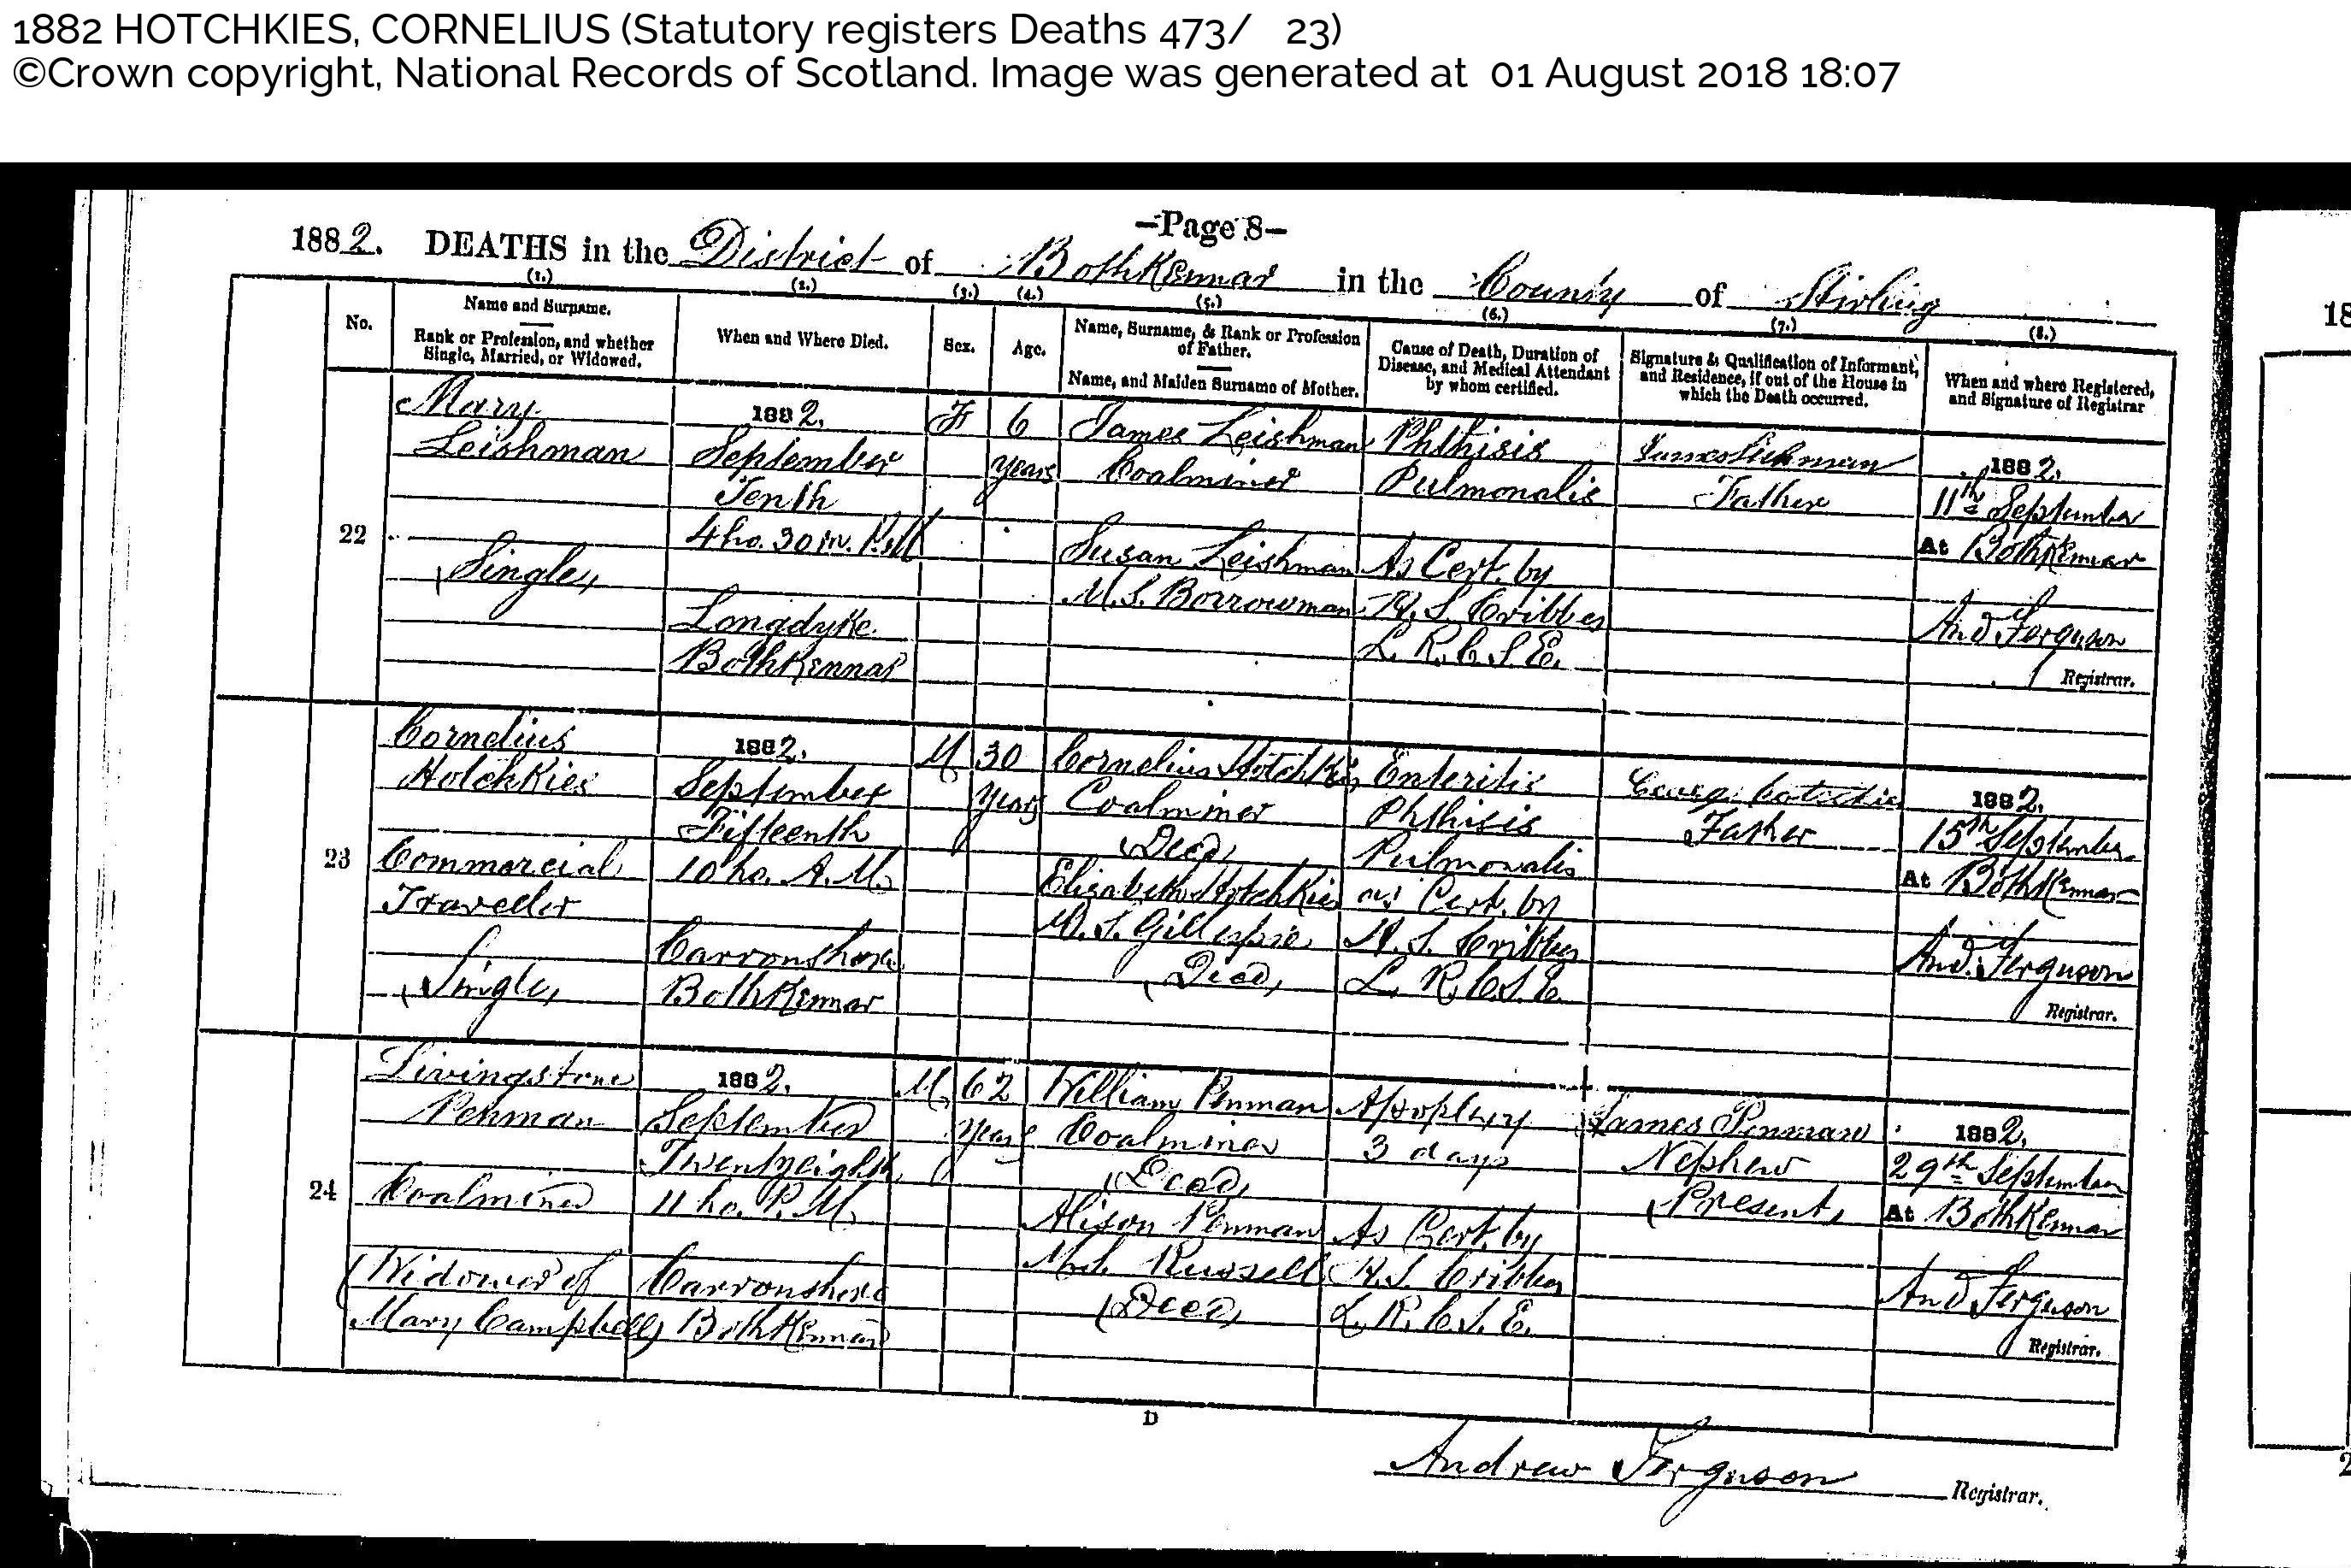 1882 HOTCHKIES, CORNELIUS (Statutory registers Deaths 473/ 23)
©Crown copyright, National Records of Scotland. Image was generated at 01 August 2018 18:07
—Page 8—
1882. DEATHS in the District of Bothkennar in the County of Stirling
(1.) (2.) (3.) (4.) (5.) (6.) (7.) (8.)
No.
Name and Surname.
Rank or Profession, and whether
Single, Married, or Widowed.
When and Where Died.
Sex.
Age.
Name, Surname, & Rank or Profession
of Father.
Name, and Maiden Surname of Mother.
Cause of Death, Duration of
Disease, and Medical Attendant
by whom certified.
Signature & Qualification of Informant,
and Residence, if out of the House in
which the Death occurred.
When and where Registered,
and Signature of Registrar
22
Mary
Leishman
(Single)
1882.
September
Tenth
4 ho. 30 m. P.M
Longdyke
Bothkennar
F
6
years
James Leishman
Coalminer
Susan Leishman
M.S. Borrowman
Phthisis
Pulmonalis
As Cert. by
L.R.C.S.E.
James Lishman
Father
1882.
11th September
At Bothkennar
And Ferguson
Registrar.
23
Cornelius
Hotchkies
Commercial
Traveller
(Single)
1882.
September
Fifteenth
10 ho. A.M.
Carronshore
Bothkennar
M
30
years
Cornelius Hotchkies
Coalminer
(Decd)
Elizabeth Hotchkies
M.S. Gillespie
(Decd)
Enteritis
Phthisis
Pulmonalis
as Cert. by
L.R.C.S.E.
Father
1882.
15th September
At Bothkennar
And. Ferguson
Registrar.
24
Livingstone
Penman
Coalminer
(Widower of
Mary Campbell)
1882.
September
Twentyeighth
11 ho. P.M.
Carronshore
Bothkennar
M.
62
years
William Penman
Coalminer
(Decd)
Alison Penman
M.S. Russell
(Decd)
Apoplexy
3 days
As Cert. by
L.R.C.S.E.
James Penman
Nephew
(Present)
1882.
29th September
At Bothkennar
And Ferguson
Registrar.
D
Andrew Ferguson Registrar.
18
2